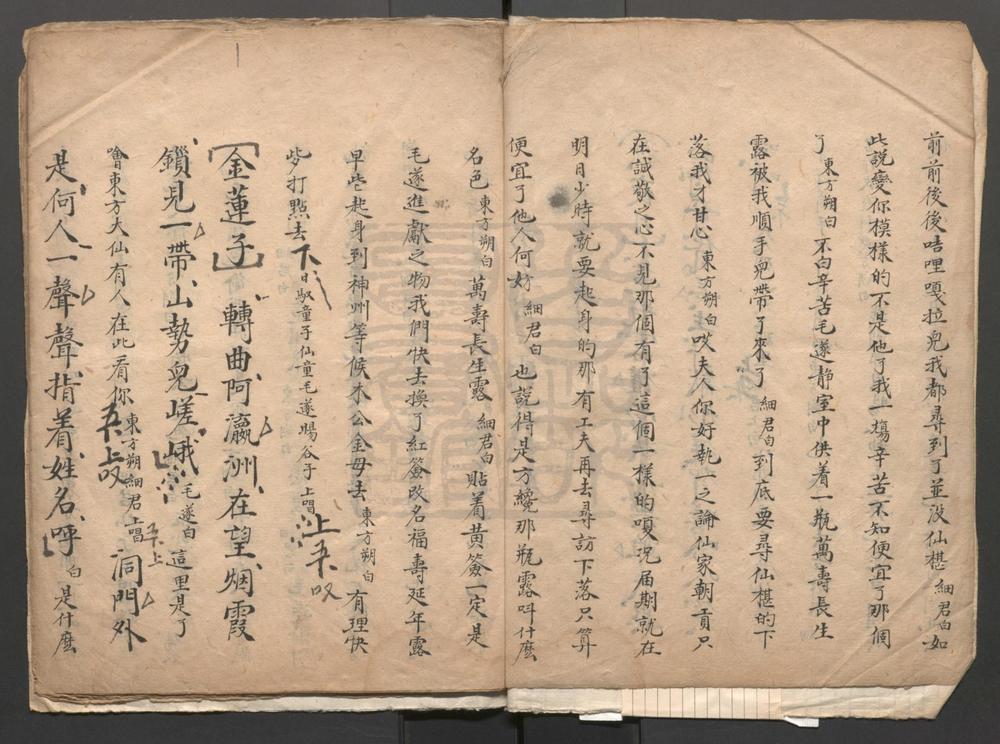 前前後後咭哩嘎拉兒我都尋到了並没仙椹細君白如
此說變你模樣的不是他了我一塲辛苦不知便宜了那個
了東方朔白不白辛苦毛遂静室中供着一瓶萬壽長生
露被我順手兒帶了來了細君白到底要尋仙椹的下
落我才甘心東方朔白哎夫人你好執一之論仙家朝貢只
在誠敬之心不見那個有了這個一樣的嗄况届期就在
明日少時就要起身的那有工夫再去尋訪下落只算
便宜了他人何妨細君白也說得是方纔那瓶露呌什麽
名色東方朔白萬壽長生露細君白貼着黄簽一定是
毛遂進獻之物我們快去換了紅簽改名福壽延年露
早些起身到神州等候木公金母去東方朔白有理快
些打點去下日馭童子仙童毛遂暘谷子上唱上平収
金蓮子轉曲阿瀛洲在望烟霞
鎖見一帶山勢兒嵯峨毛遂白這里是了
噲東方大仙有人在此看你東方朔細君上唱洞門外
是何人一聲聲指着姓名呼白是什麽